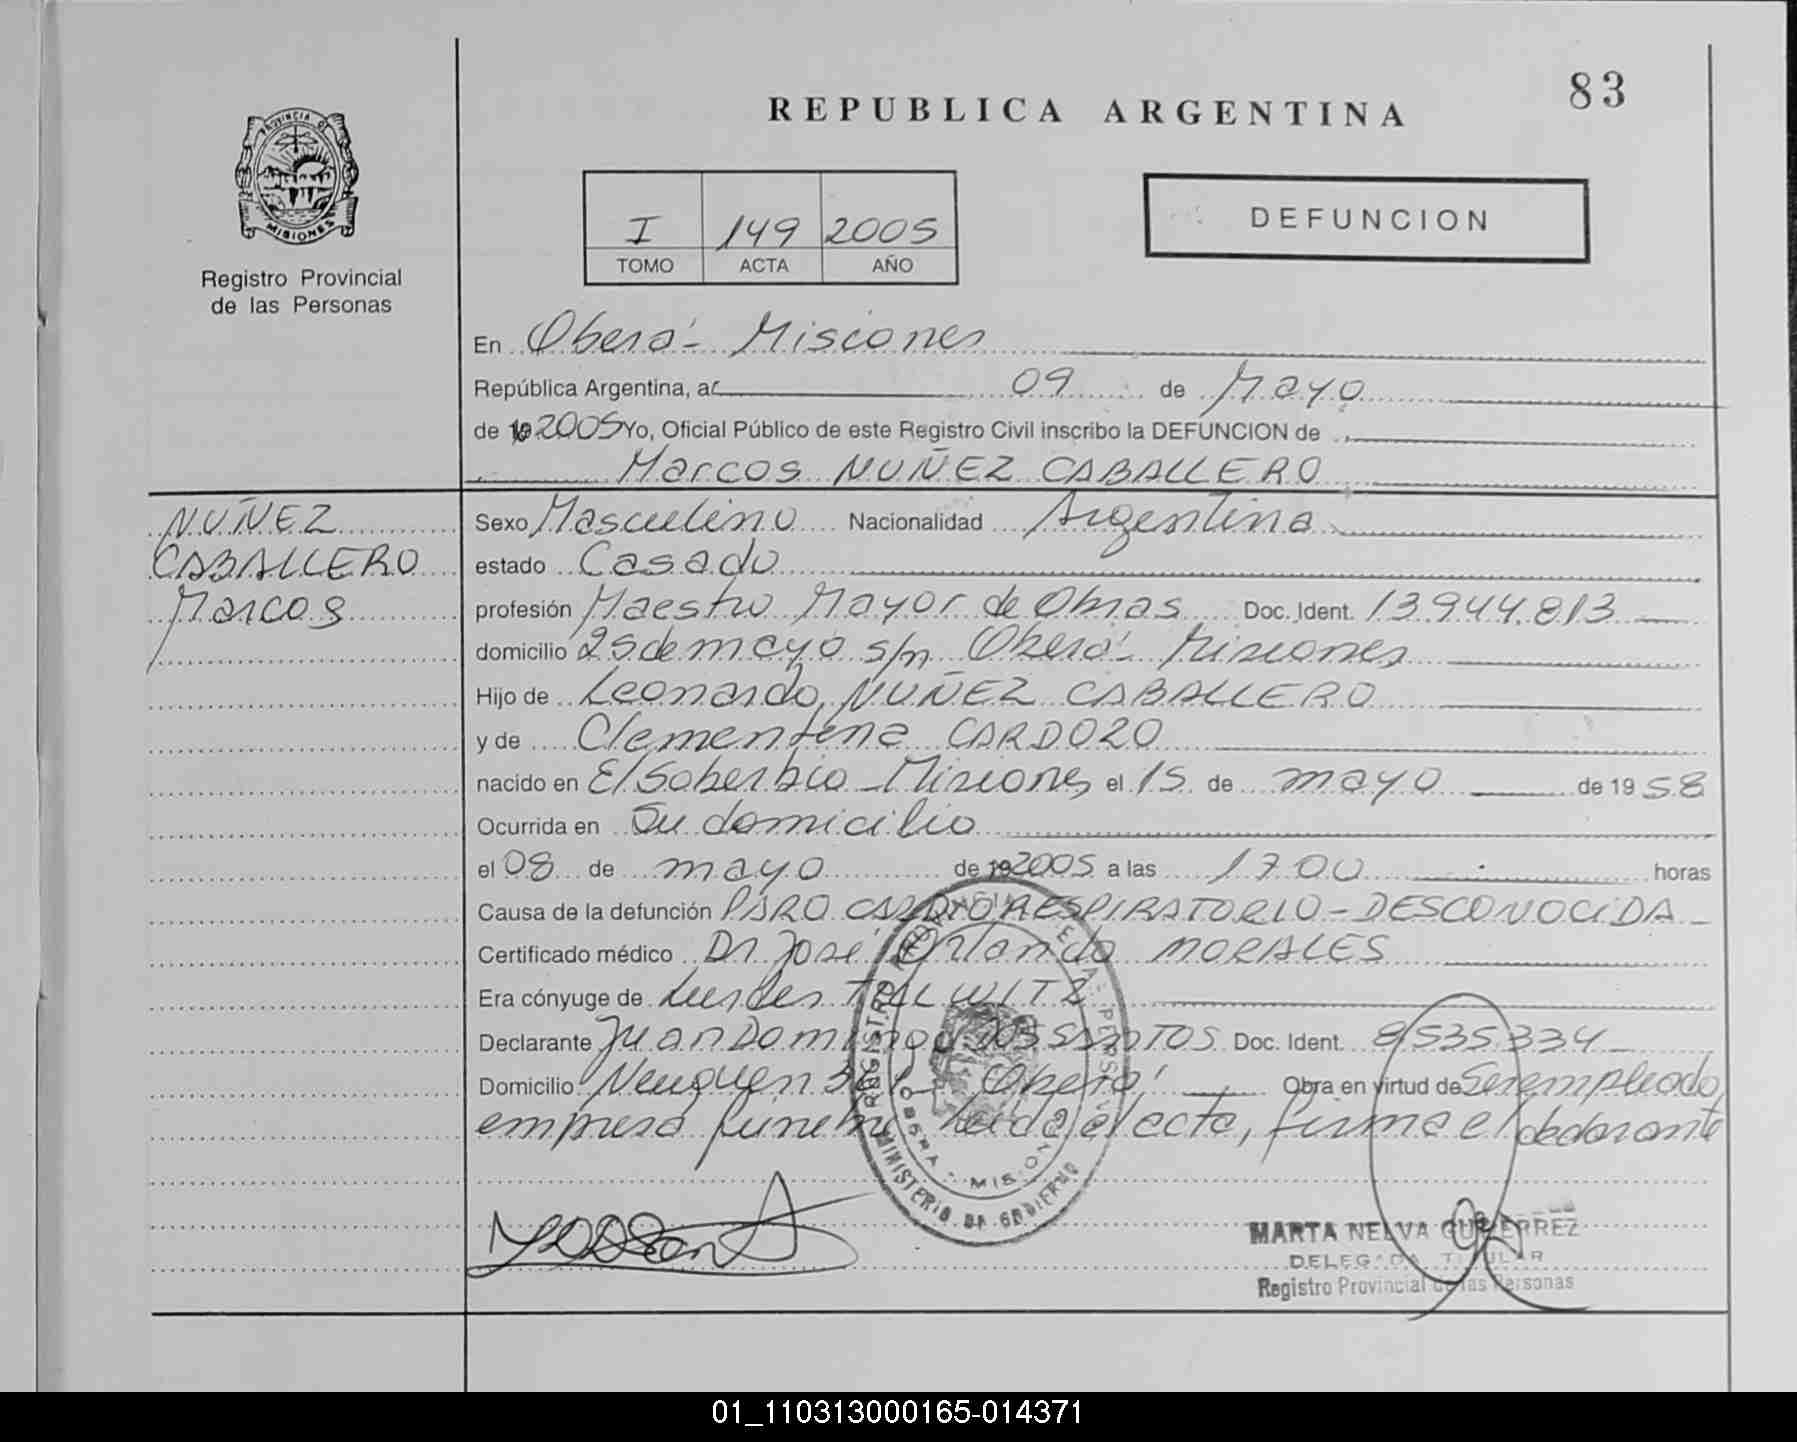 83
REPUBLICA ARGENTINA
PROVINCIA DE
MISIONES
Registro Provincial
de las Personas
I 149 2005
TOMO ACTA AÑO
DEFUNCION
En Oberá - Misiones
República Argentina, a 09 de Mayo
de 19 2005 Yo, Oficial Público de este Registro Civil inscribo la DEFUNCION de
Marcos NUÑEZ CABALLERO
NUÑEZ
CABALLERO
Marcos
Sexo Masculino Nacionalidad Argentina
estado Casado
profesión Maestro Mayor de Obras Doc. Ident. 13.944.813
domicilio 25 de mayo s/n Oberá - Misiones
Hijo de Leonardo NUÑEZ CABALLERO
y de Clementina CARDOZO
nacido en El Soberbio - Misiones el 15 de mayo de 1958
Ocurrida en Su domicilio
el 08 de mayo de 19 2005 a las 17 00 horas
Causa de la defunción PARO CARDIO RESPIRATORIO - DESCONOCIDA
Certificado médico Dr José Orlando MORALES
Era cónyuge de
Declarante Juan Domingo DOS SANTOS Doc. Ident. 8535334
Domicilio Neuquen Oberá Obra en virtud de Ser empleado
empresa fúnebre Leida el acta, firma el declarante
MINISTERIO DE GOBIERNO
MARTA NELVA GUTIERREZ
DELEGADA TITULAR
Registro Provincial de las Personas
01_110313000165-014371